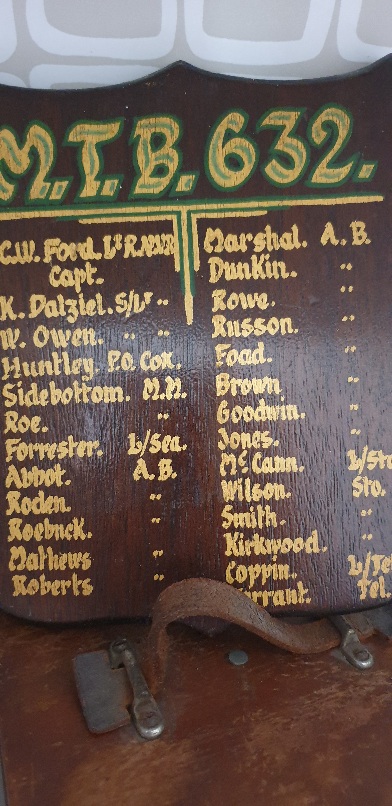 M.T.B. 632.
C.W. Ford. Lt R.N.V.R
Capt.
K. Dalziel. S/Lt "
W. Owen. " "
Huntley. P.O. Cox.
Sidebottom. M.M.
Roe. "
Forrester. L/Sea.
Abbot. A.B.
Roden. "
Roebuck. "
Mathews "
Roberts "
Marshal. A.B.
Dunkin. "
Rowe. "
Russon. "
Foad. "
Brown. "
Goodwin. "
Jones. "
McCann. L/Sto
Wilson. Sto.
Smith. "
Kirkwood. "
Coppin. L/Tel
Tel.